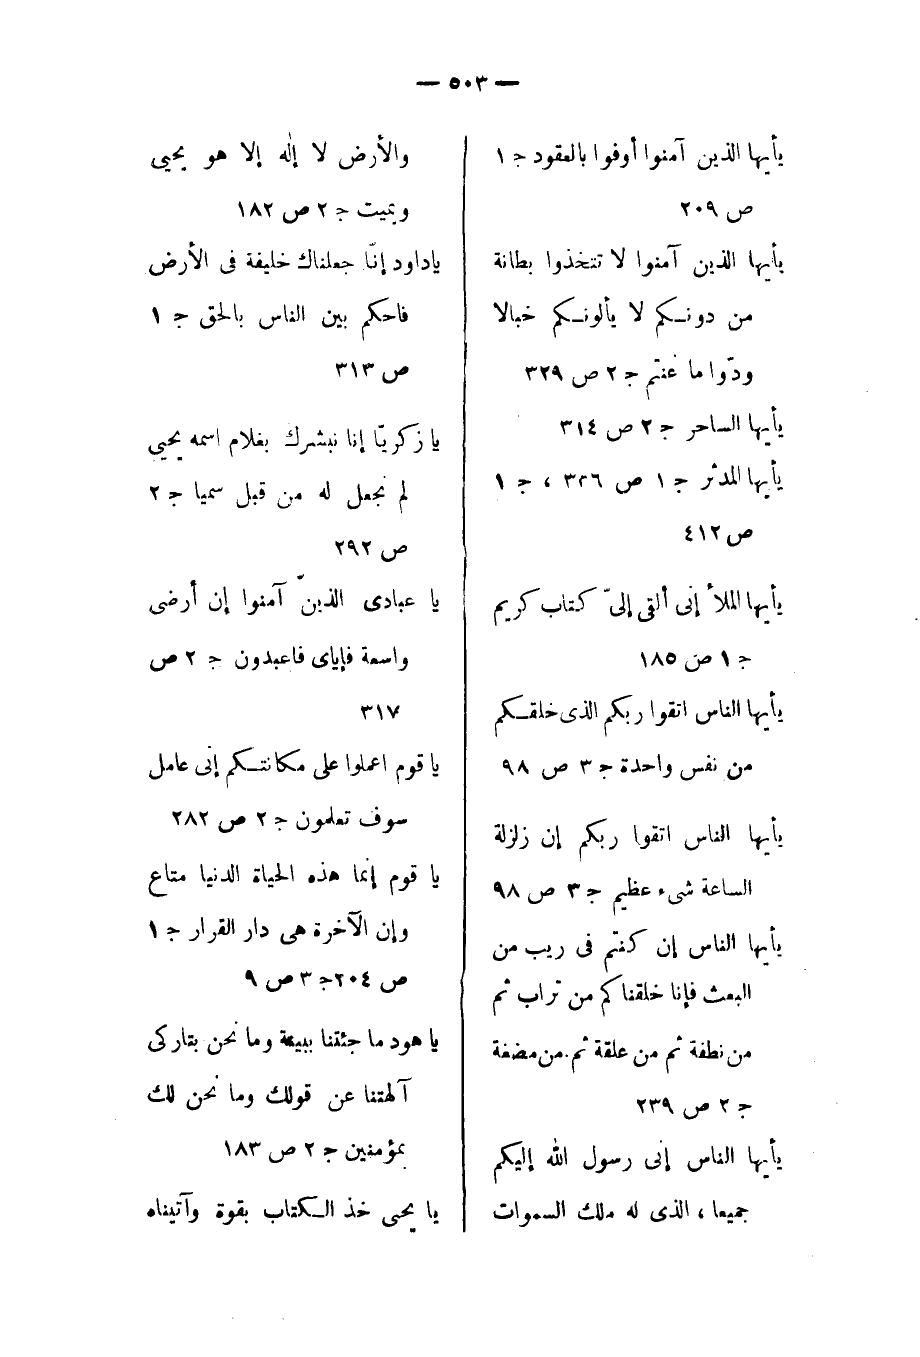 — ٥٠٣ —
يأيها الذين آمنوا أوفوا بالعقود ج ١
ص ٢٠٩
يأيها الذين آمنوا لا تتخذوا بطانة
من دونكم لا يألونكم خبالا
ودّوا ما عنتم ج ٢ ص ٣٢٩
يأيها الساحر ج ٢ ص ٣١٤
يأيها المدثر ج ١ ص ٣٢٦ ، ج ١
ص ٤١٢
يأيها الملأ إنى ألقى إلىّ كتاب كريم
ج ١ ص ١٨٥
يأيها الناس اتقوا ربكم الذى خلقكم
من نفس واحدة ج ٣ ص ٩٨
يأيها الناس اتقوا ربكم إن زلزلة
الساعة شىء عظيم ج ٣ ص ٩٨
يأيها الناس إن كنتم فى ريب من
البعث فإنا خلقناكم من تراب ثم
من نطفة ثم من علقة ثم من مضغة
ج ٢ ص ٢٣٩
يأيها الناس إنى رسول الله إليكم
جميعا ، الذى له ملك السموات
والأرض لا إله إلا هو يحيى
ويميت ج ٢ ص ١٨٢
ياداود إنّا جعلناك خليفة فى الأرض
فاحكم بين الناس بالحق ج ١
ص ٣١٣
يا زكريّا إنا نبشرك بغلام اسمه يحيى
لم نجعل له من قبل سميا ج ٢
ص ٢٩٢
يا عبادى الذين آمنوا إن أرضى
واسعة فإياى فاعبدون ج ٢ ص
٣١٧
يا قوم اعملوا على مكانتكم إنى عامل
سوف تعلمون ج ٢ ص ٢٨٢
يا قوم إنما هذه الحياة الدنيا متاع
وإن الآخرة هى دار القرار ج ١
ص ٢٠٤ ج ٣ ص ٩
يا هود ما جئتنا ببينة وما نحن بتاركى
آلهتنا عن قولك وما نحن لك
بمؤمنين ج ٢ ص ١٨٣
يا يحيى خذ الكتاب بقوة وآتيناه